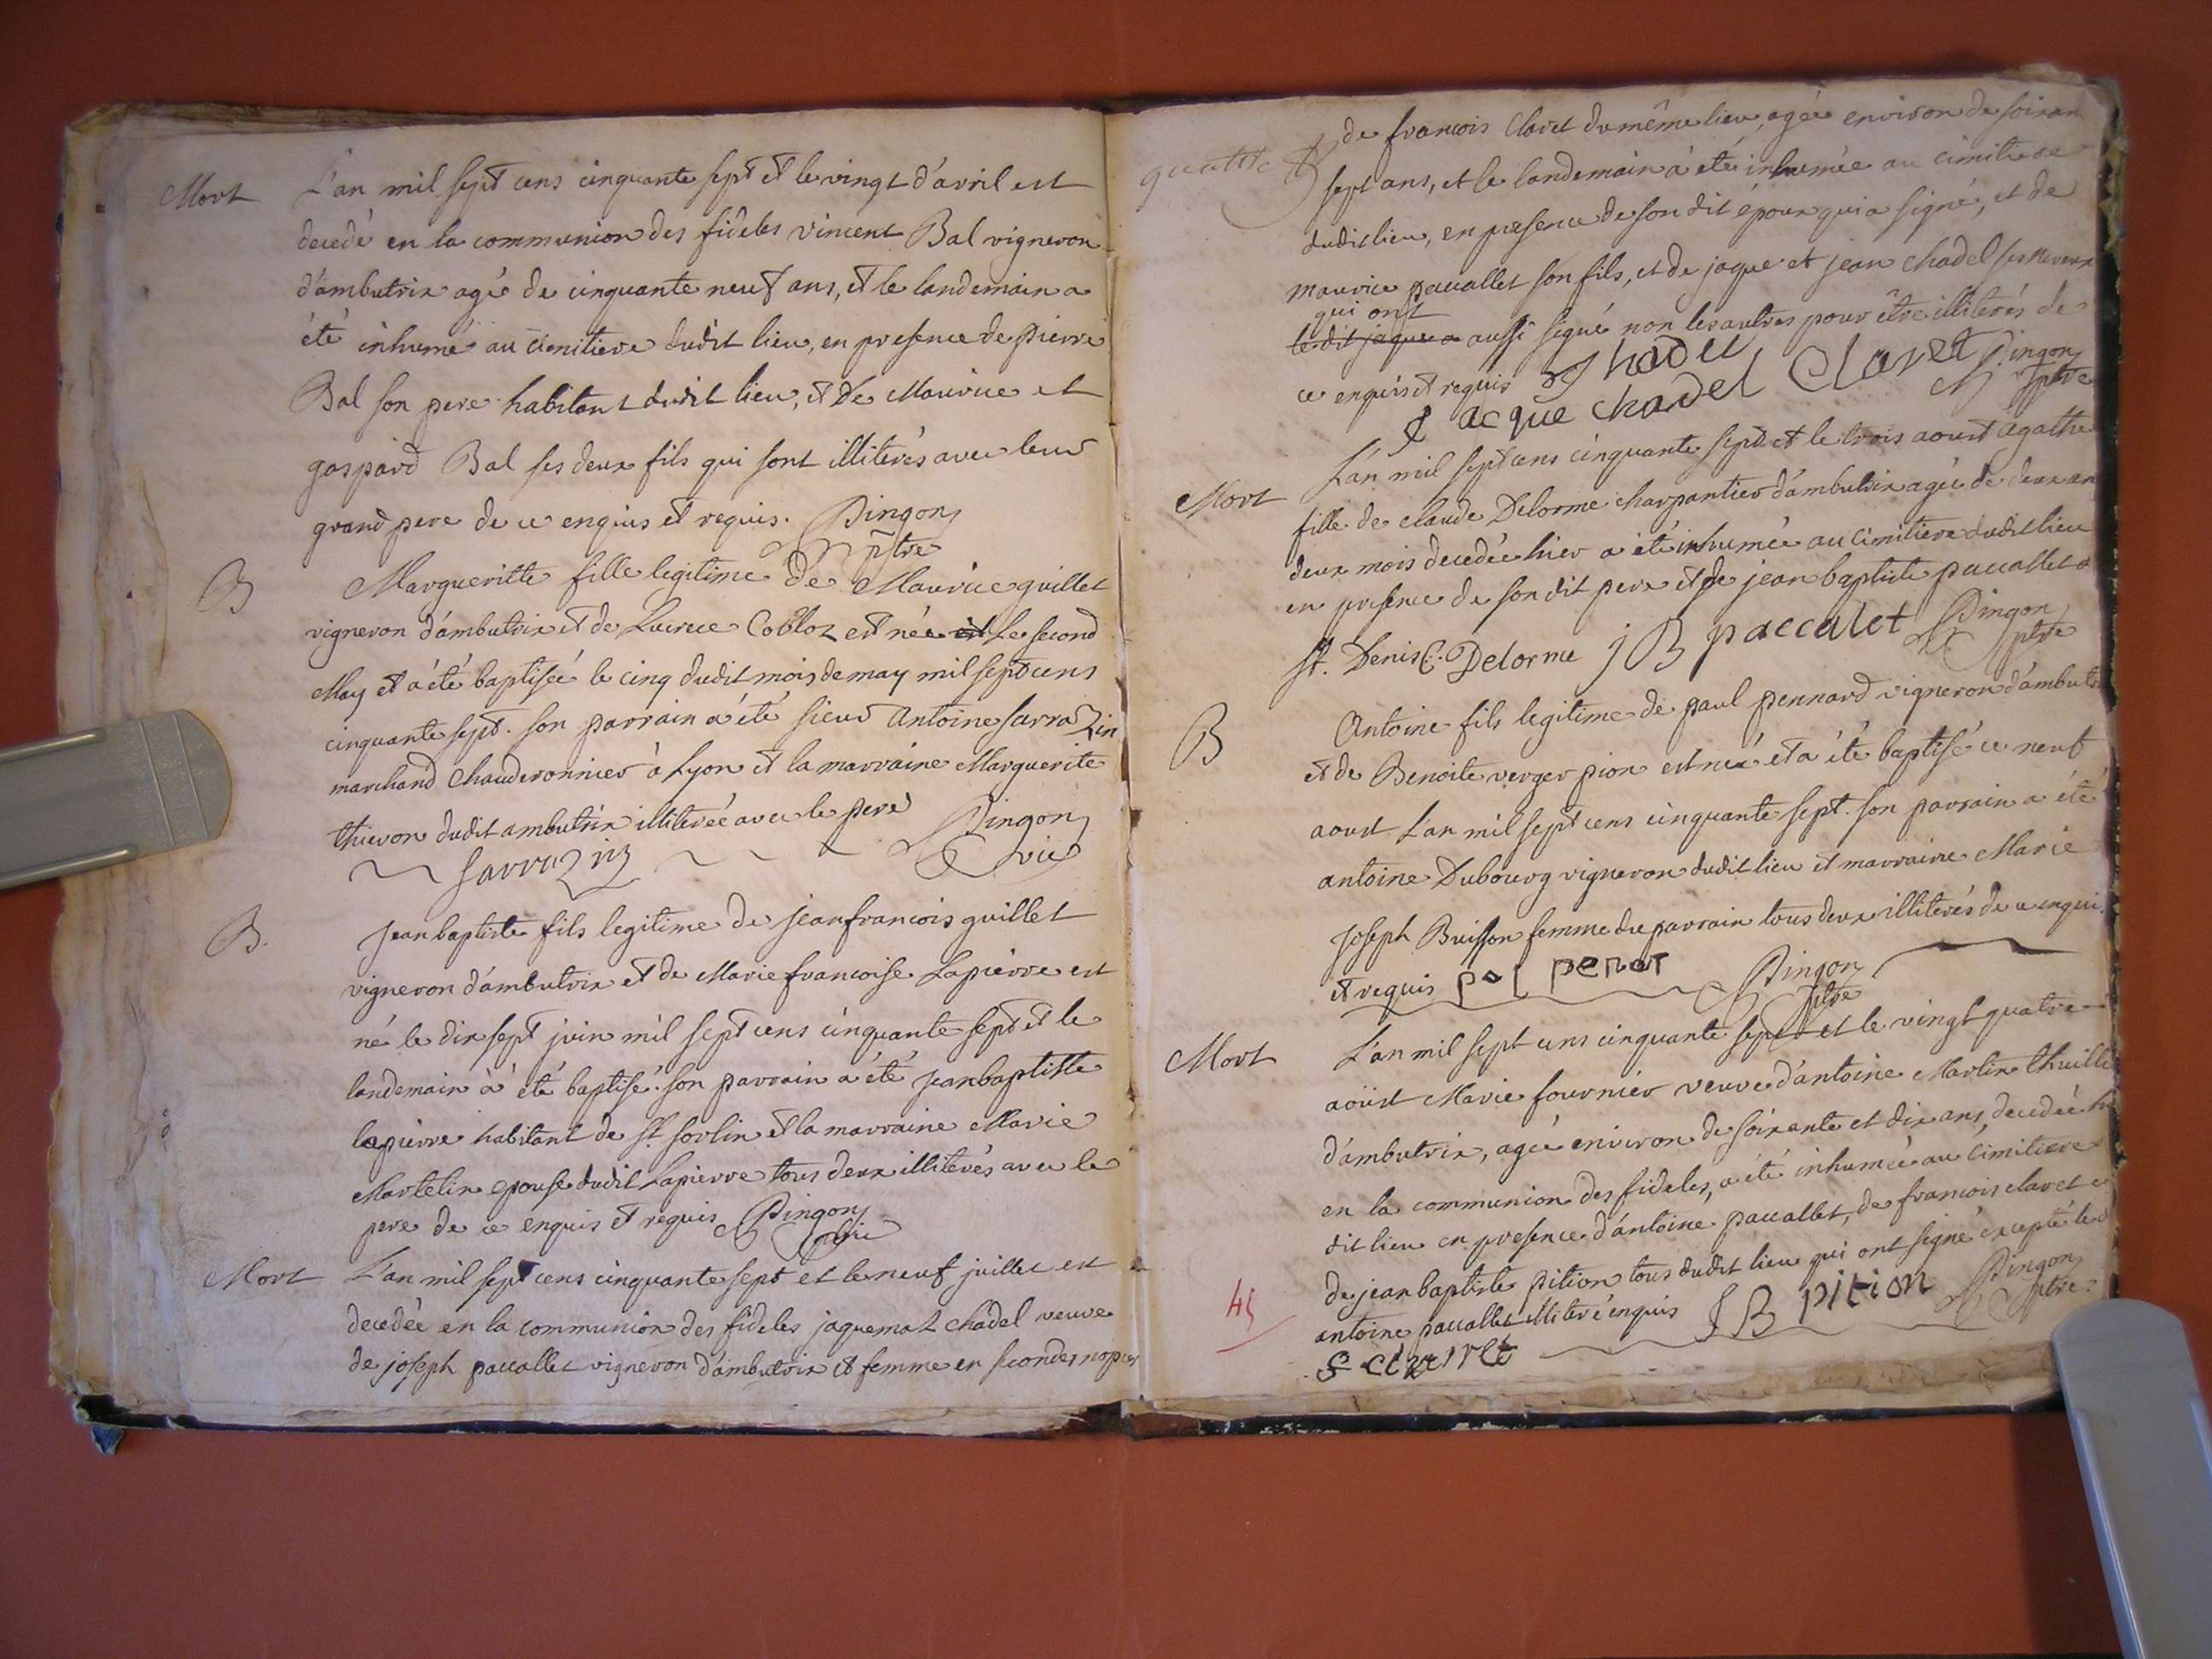 Mort L'an mil sept cens cinquante sept et le vingt d'avril est
decedé en la communion des fideles vincent Bal vigneron
d'ambutrix agé de cinquante neuf ans, et le landemain a
été inhumé au cimitiere dudit lieu, en presence de pierre
Bal son pere habitant dudit lieu, et de Maurice et
gaspard Bal ses deux fils qui sont illiterés avec leur
grand pere de ce enquis et requis. Pingon
ptre
B Margueritte fille legitime de Maurice guillet
vigneron d'ambutrix et de Lucrece Cobloz est née est le second
May et a été baptisée le cinq dudit mois de may mil sept cens
cinquante sept. son parrain a été sieur Antoine sarrazin
marchand chauderonnier à Lyon et la marraine Marguerite
thievon dudit ambutrix illiterée avec le pere Pingon
sarrazin vic
B. Jean baptiste fils legitime de jean francois guillet
vigneron d'ambutrix et de Marie francoise Lapierre est
né le dix sept juin mil sept cens cinquante sept et le
landemain a été baptisé. son parrain a été jean baptiste
lapierre habitant de st sorlin et la marraine Marie
Martelin epouse dudit Lapierre tous deux illiterés avec le
pere de ce enquis et requis Pingon
Mort L'an mil sept cens cinquante sept et le neuf juillet est
decedée en la communion des fideles jaquemat chadel veuve
de joseph paccallet vigneron d'ambutrix et femme en secondes nopces
de francois Claret du même lieu, agée environ de soixan
sept ans, et le landemain a été inhumée au cimitiere
dudit lieu, en presence de son dit epoux qui a signé, et de
maurice paccallet son fils, et de jaque et jean chadel ses neveux
qui ont
ledit jaque a aussi signé non les autres pour être illiterés de
ce enquis et requis J hadel Claret Pingon
Jacque chadel ptre
Mort L'an mil sept cens cinquante sept et le trois aoust agathe
fille de claude Delorme charpantier d'ambutrix agée de deux an
deux mois decedée hier a été inhumée au cimitiere dudit lieu
en presence de son dit pere et de jean baptiste paccallet d
st. Denis C. Delorme j B paccalet Pingon
ptre
B Antoine fils legitime de paul pennard vigneron d'ambutri
et de Benoite verger pion est né et a été baptisé ce neuf
aoust L'an mil sept cens cinquante sept. son parrain a été
antoine Dubourg vigneron dudit lieu et marraine Marie
Joseph Buisson femme du parrain tous deux illiterés de ce enqui
et requis pol penar Pingon
ptre
Mort L'an mil sept cens cinquante sept et le vingt quatre
aoust Marie fournier veuve d'antoine Martin thuilli
d'ambutrix, agée environ de soixante et dix ans, decedée h
en la communion des fideles, a été inhumée au cimitiere
dit lieu en presence d'antoine paccallet, de francois claret e
de jean baptiste pition tous dudit lieu qui ont signé excepté led
antoine paccallet illiteré enquis J B pition Pingon
ptre
45